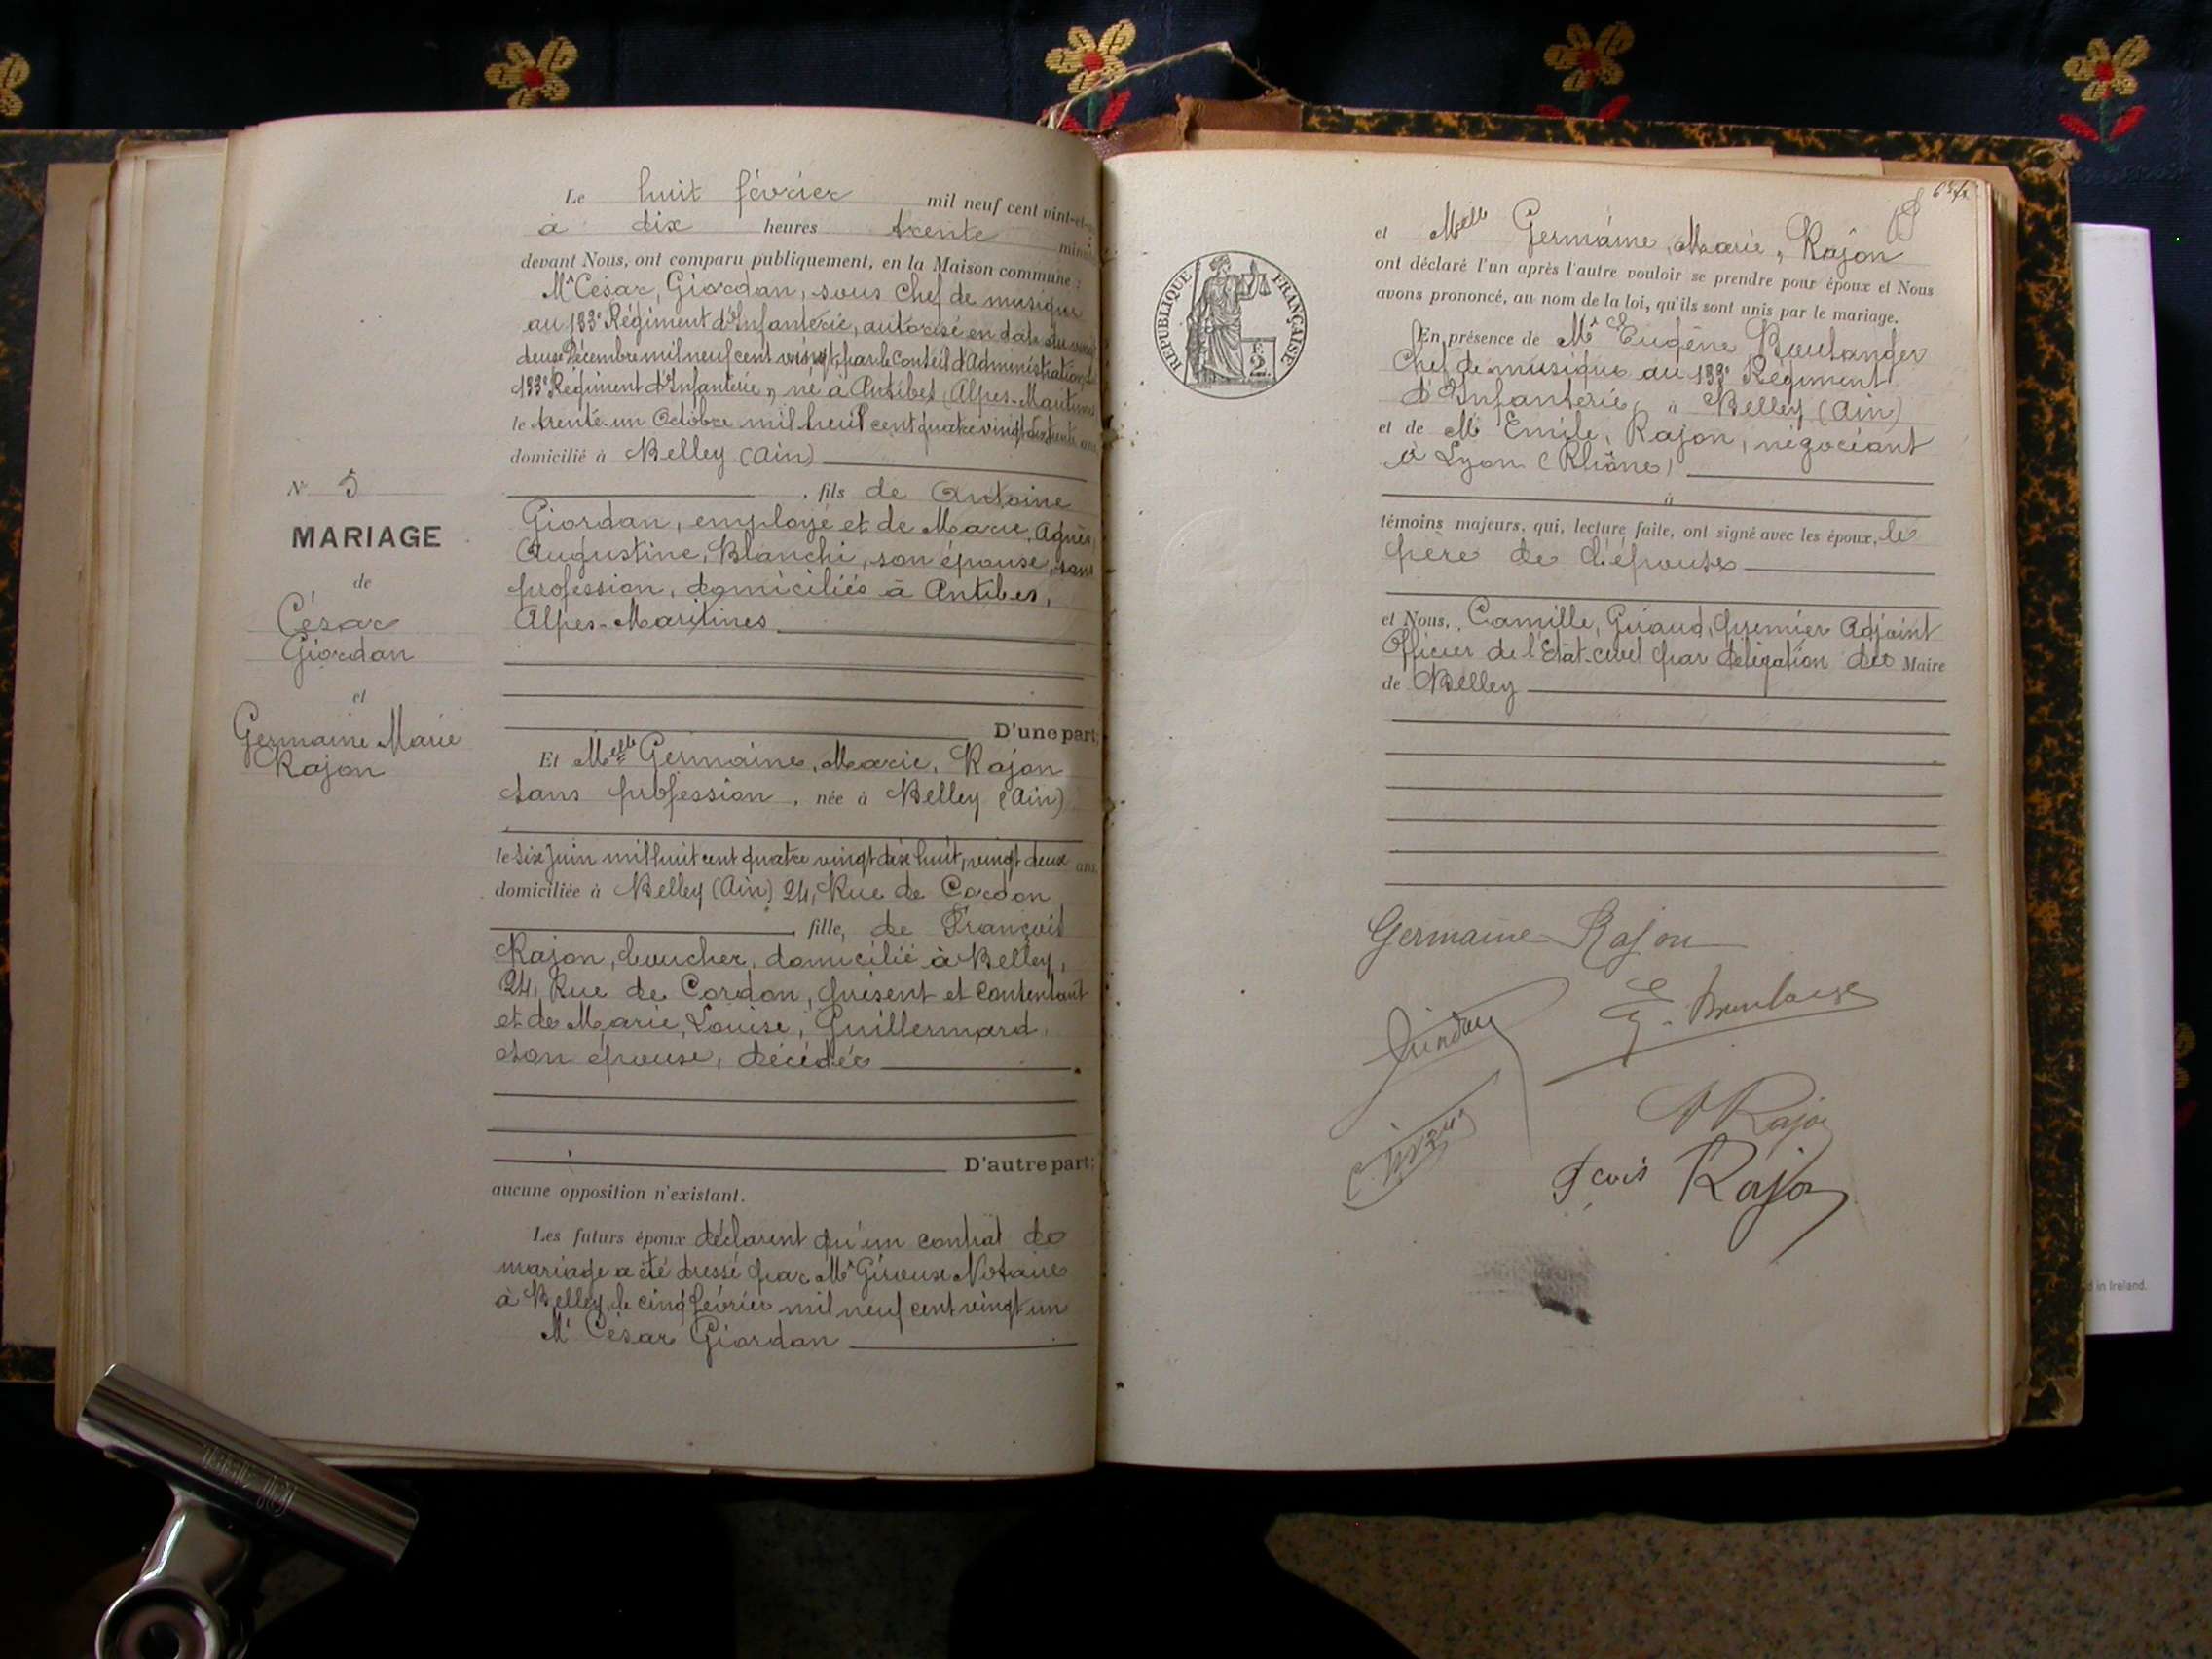 N° 5
MARIAGE
de
César
Giordan
et
Germaine Marie
Rajon
Le huit février mil neuf cent vint-et-
à dix heures trente
devant Nous, ont comparu publiquement, en la Maison commune :
Mr César, Giordan, sous chef de musique
au 133e Régiment d'Infanterie, autorisé en date du
deux Décembre mil neuf cent vingt, par le Conseil d'Administration
133e Régiment d'Infanterie, né à Antibes (Alpes-Maritimes
le trente-un Octobre mil huit cent quatre vingt dix, trente ans
domicilié à Belley (Ain)
, fils de Antoine
Giordan, employé et de Marie, Agnès,
Augustine, Blanchi, son épouse, sans
profession, domiciliés à Antibes,
Alpes-Maritimes
D'une part;
Et Melle Germaine, Marie, Rajon
sans profession, née à Belley (Ain)
le six Juin mil huit cent quatre vingt dix huit, vingt deux ans
domiciliée à Belley (Ain) 24, Rue de Cordon
, fille, de François
Rajon, boucher, domicilié à Belley,
24, Rue de Cordon, présent et consentant
et de Marie, Louise, Guillermard,
son épouse, décédée
D'autre part;
aucune opposition n'existant.
Les futurs époux déclarent qu'un contrat de
mariage a été dressé par Me Girouse Notaire
à Belley, le cinq février mil neuf cent vingt un
Mr César Giordan
RÉPUBLIQUE FRANÇAISE
F.
2.
et Melle Germaine, Marie, Rajon
ont déclaré l'un après l'autre vouloir se prendre pour époux et Nous
avons prononcé, au nom de la loi, qu'ils sont unis par le mariage.
En présence de Mr Eugène Boulanger
Chef de musique au 133e Régiment
d'Infanterie, à Belley (Ain)
et de Mr Emile, Rajon, négociant
à Lyon (Rhône)
à
témoins majeurs, qui, lecture faite, ont signé avec les époux, le
père de l'épouse
et Nous, Camille, Giraud, premier Adjoint
Officier de l'Etat-civil par délégation du Maire
de Belley
Germaine Rajon
Giordan
E. Boulanger
Rajon
Fcois Rajon
d in Ireland.